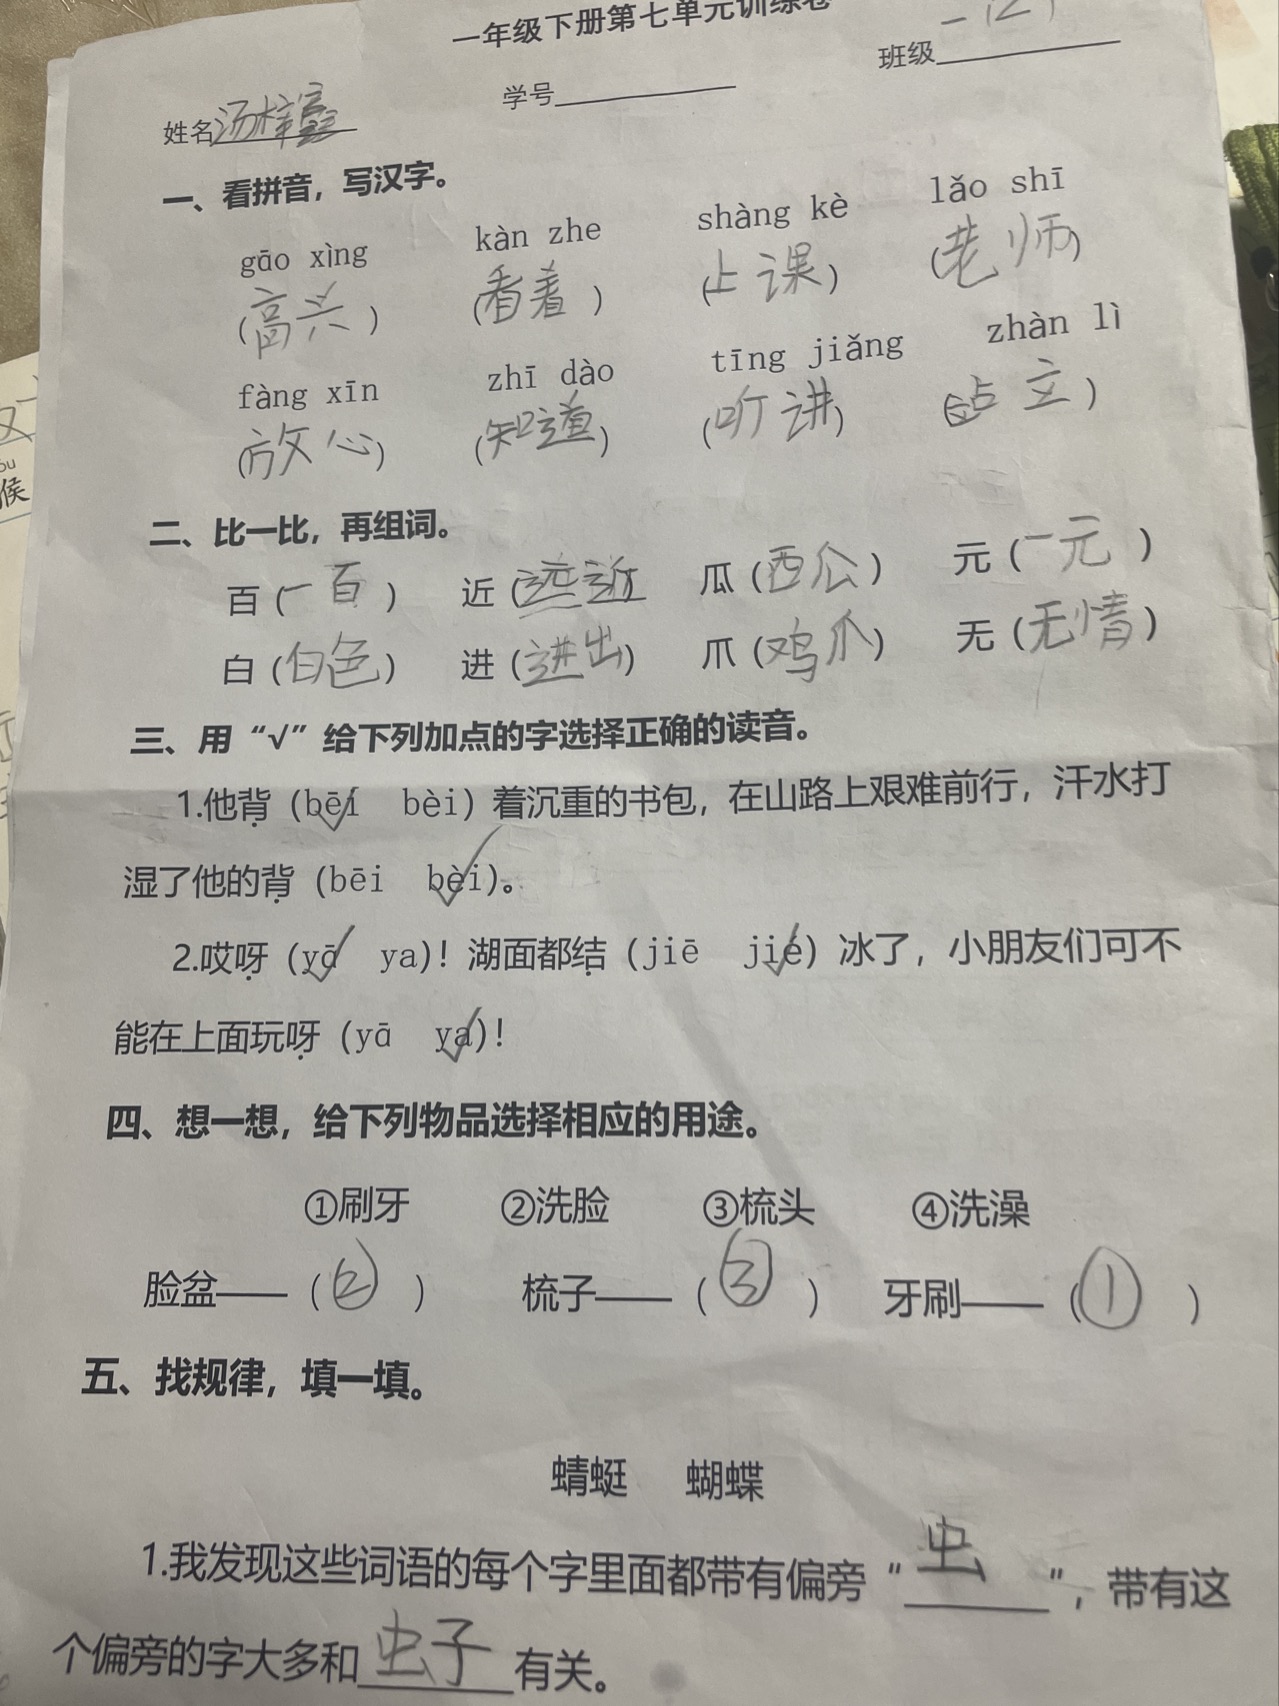 一年级下册第七单元训练卷
姓名汤梓 学号 班级一(2)
一、看拼音，写汉字。
gāo xìng kàn zhe shàng kè lǎo shī
(高兴) (看着) (上课) (老师)
fàng xīn zhī dào tīng jiǎng zhàn lì
(放心) (知道) (听讲) (站立)
二、比一比，再组词。
百(一百) 近(远近) 瓜(西瓜) 元(一元)
白(白色) 进(进出) 爪(鸡爪) 无(无情)
三、用“√”给下列加点的字选择正确的读音。
1.他背（bēi√ bèi）着沉重的书包，在山路上艰难前行，汗水打
湿了他的背（bēi bèi√）。
2.哎呀（yā√ ya）！湖面都结（jiē jié√）冰了，小朋友们可不
能在上面玩呀（yā ya√）！
四、想一想，给下列物品选择相应的用途。
①刷牙 ②洗脸 ③梳头 ④洗澡
脸盆——（②） 梳子——（③） 牙刷——（①）
五、找规律，填一填。
蜻蜓 蝴蝶
1.我发现这些词语的每个字里面都带有偏旁“虫”，带有这
个偏旁的字大多和虫子有关。